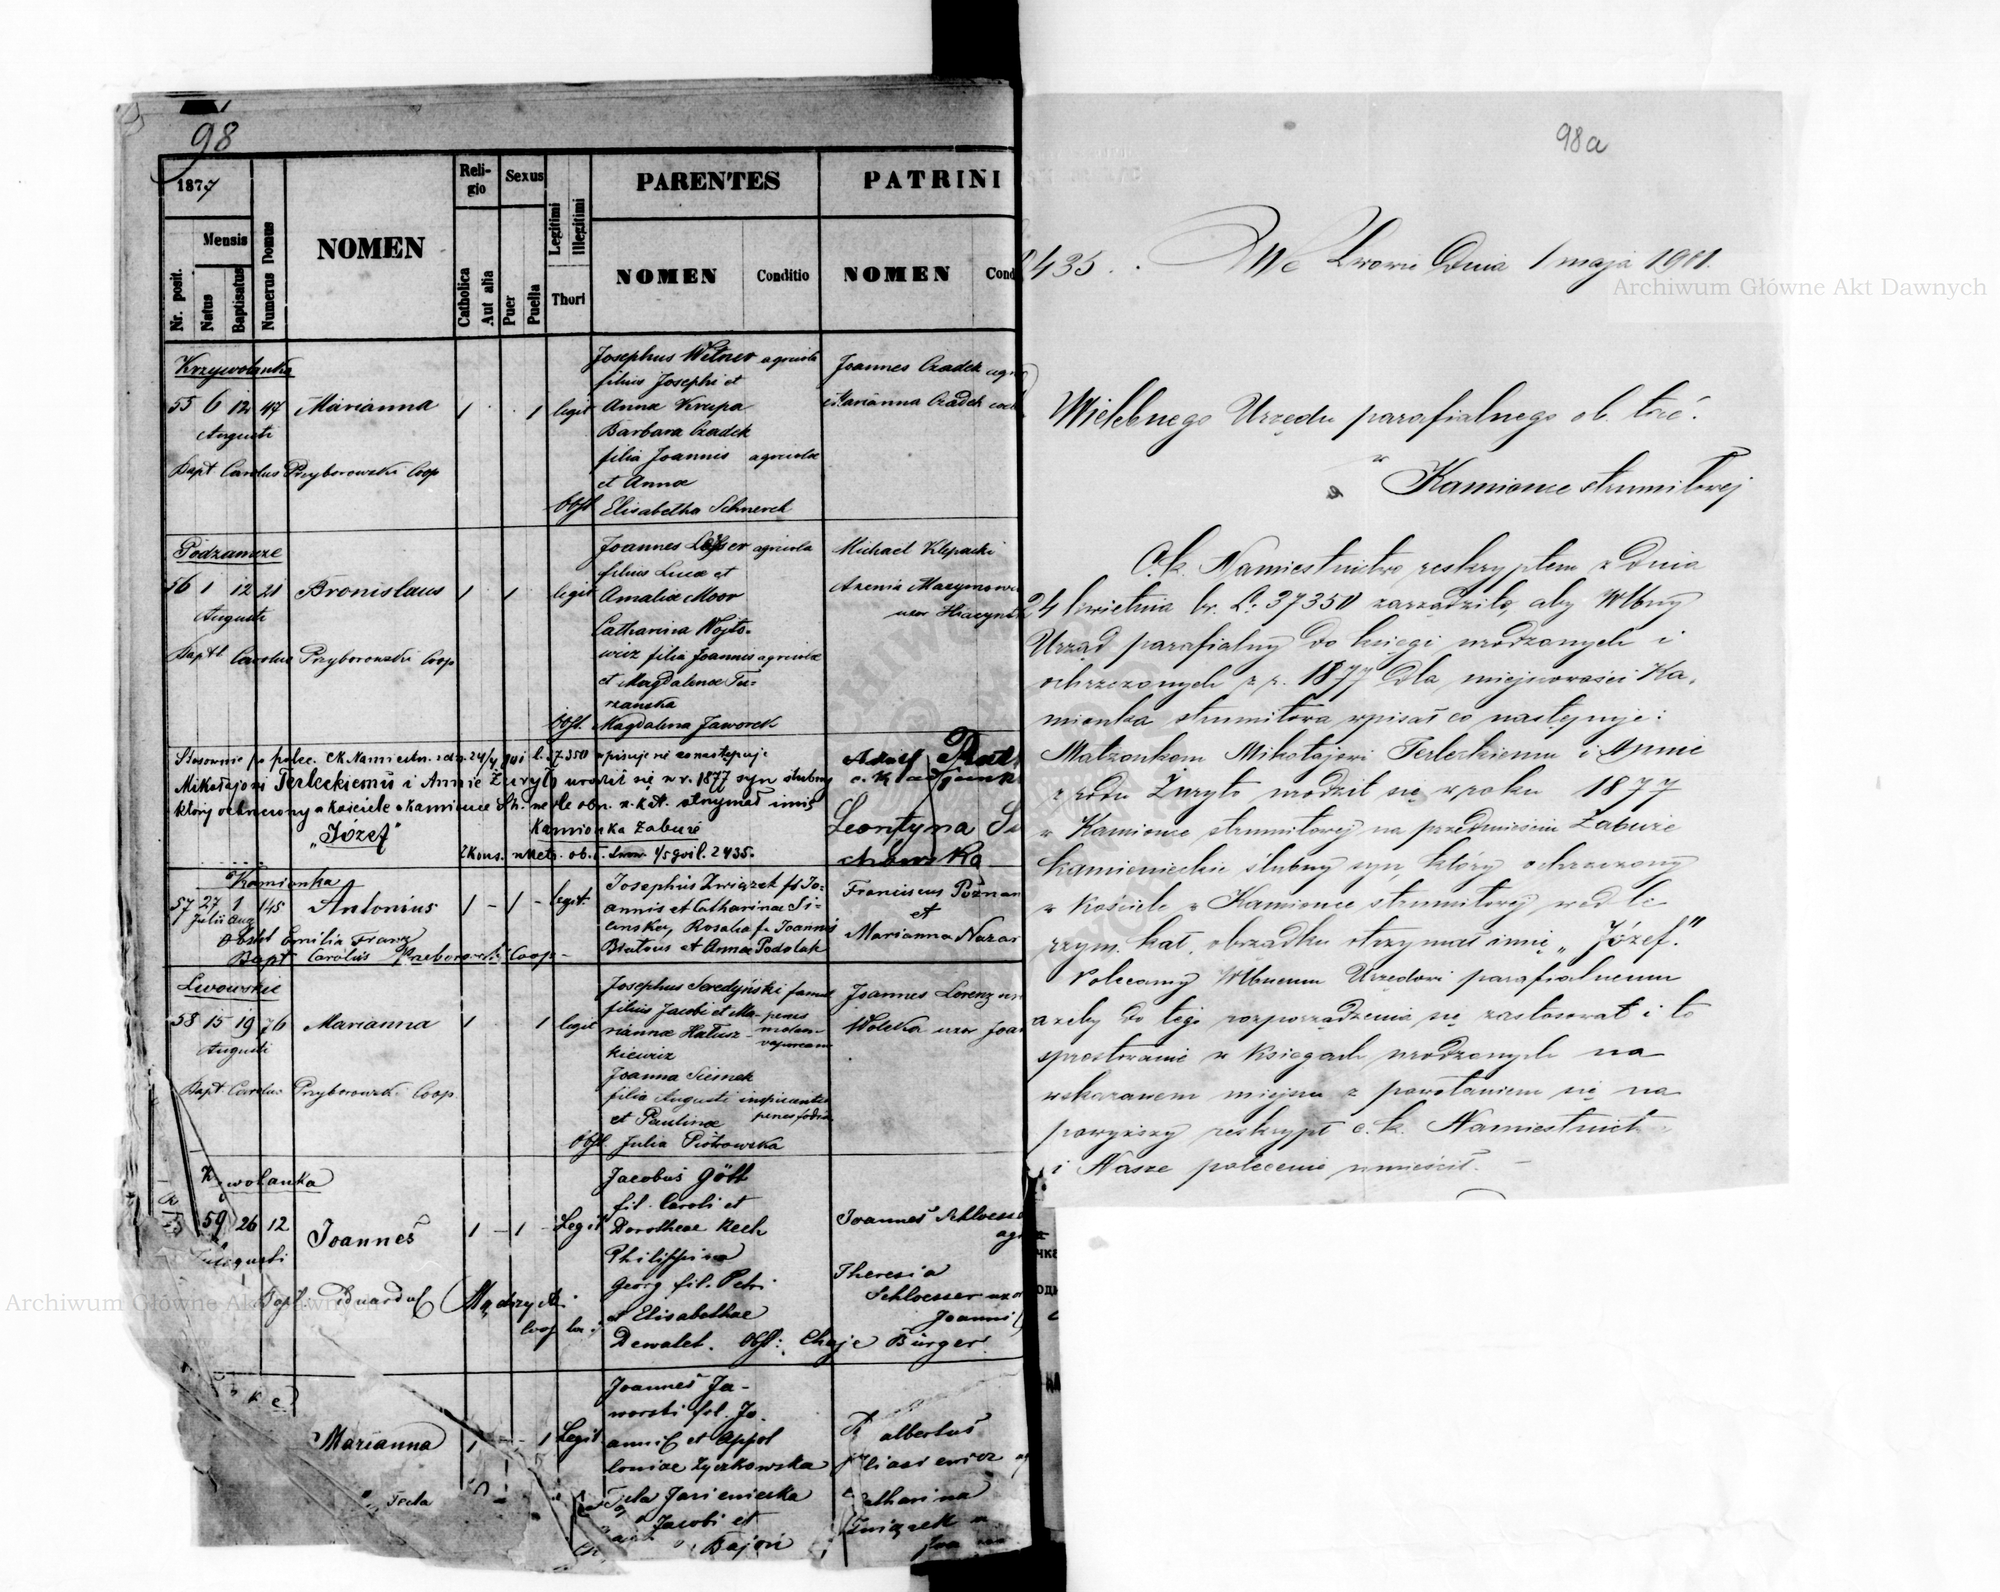 98
1877
Mensis
Nr. posit.
Natus
Baptisatus
Numerus Domus
NOMEN
Religio
Catholica
Aut alia
Sexus
Puer
Puella
Legitimi
Illegitimi
Thori
PARENTES
NOMEN
Conditio
PATRINI
NOMEN
Cond
Krzywolanka
55 6 12 47 Marianna 1 1 legit
Augusti
Bapt Carolus Przyborowski Coop
Josephus Wetner agricola
filius Josephi et
Anna Krupa
Barbara Czadek
filia Joannis agricolae
et Annae
Obst Elisabetha Schnerch
Joannes Czadek
Marianna Czadek
Podzamcze
56 1 12 21 Bronislaus 1 1 legit
Augusti
Bapt Carolus Przyborowski Coop
Joannes Lesser agricola
filius Lucae et
Amaliae Moor
Catharina Wojto-
wicz filia Joannis agricolae
et Magdalenae Tu-
rzanska
Obst. Magdalena Jaworek
Michael Klepacki
uxor
Stosownie po polec. CK Namiestn. z dn. 24/4 911 l. 37350 wpisuje się co następuje
Mikołajowi Terleckiemu i Annie Żuryło urodził się w r. 1877 syn ślubny
który ochrzczony w kościele w Kamionce Str. wedle obr. rz. kat. otrzymał imię
„Józef"
Kamionka Zabuże
Lwów 1/5 911 l. 2435.
Adolf
c. k. adjunkt
Leontyna
Kamionka
57 27 1 145 Antonius 1 - 1 - legit.
Julii Aug
Obst Emilia Franz
Bapt Carolus Przeborowski Coop -
Josephus Związek fs Jo-
annis et Catharinae Si-
enskey, Rosalia fa Joannis
Bratous et Annae Podolak
Franciscus
et
Marianna Nazar
Lwowskie
58 15 19 76 Marianna 1 1 legit
Augusti
Bapt Carolus Przyborowski Coop
Josephus Seredyński
filius Jacobi et Ma- penes
riannae Hatusz-
kiewicz
Joanna Siemek
filia Augusti
et Paulinae
Obst. Julia Piotrowska
Joannes Lorenz
uxor Joan
Krzywolanka
59 26 12 Joannes 1 - 1 - Legit
Augusti
Bapt. Eduardus Mądrzycki
Coop
Jacobus Gött
fil. Caroli et
Dorotheae Rech
Philippina
Georg fil. Petri
et Elisabethae
Dewalet. Obst: Chaje Bürger
Joannes Schloesse
Theresia
Schloesser uxor
Joannis
Marianna 1 - 1 Legit
Tecla
Joannes Ja-
worski fil. Jo-
annis et Appol
loniae Zyczkowska
Tecla Jasieniecka
Jacobi et
Bajori
albertus
Catharina
Związek
98a
2435. We Lwowie Dnia 1 maja 1911.
Wielebnego Urzędu parafialnego ob. łać.
w
Kamionce strumiłowej
C.k. Namiestnictwo reskryptem z dnia
24 kwietnia br. L: 37350 zarządziło, aby Wlbny
Urząd parafialny do księgi urodzonych i
ochrzczonych z r. 1877 dla miejscowości Ka-
mionka strumiłowa wpisał co następuje:
Małżonkom Mikołajowi Terleckiemu i Annie
z rodu Żuryło urodził się w roku 1877
w Kamionce strumiłowej na przedmieściu Zabuże
kamienieckie ślubny syn, który ochrzczony
w kościele w Kamionce strumiłowej wedle
rzym. kat. obrządku otrzymał imię „Józef."
Polecamy Wlbnemu Urzędowi parafialnemu
ażeby do tego rozporządzenia się zastosował i to
sprostowanie w księgach urodzonych na
wskazanem miejscu z powołaniem się na
powyższy reskrypt c.k. Namiestnict
i Nasze polecenie umieścił. -
Archiwum Główne Akt Dawnych
Archiwum Główne Akt Dawnych